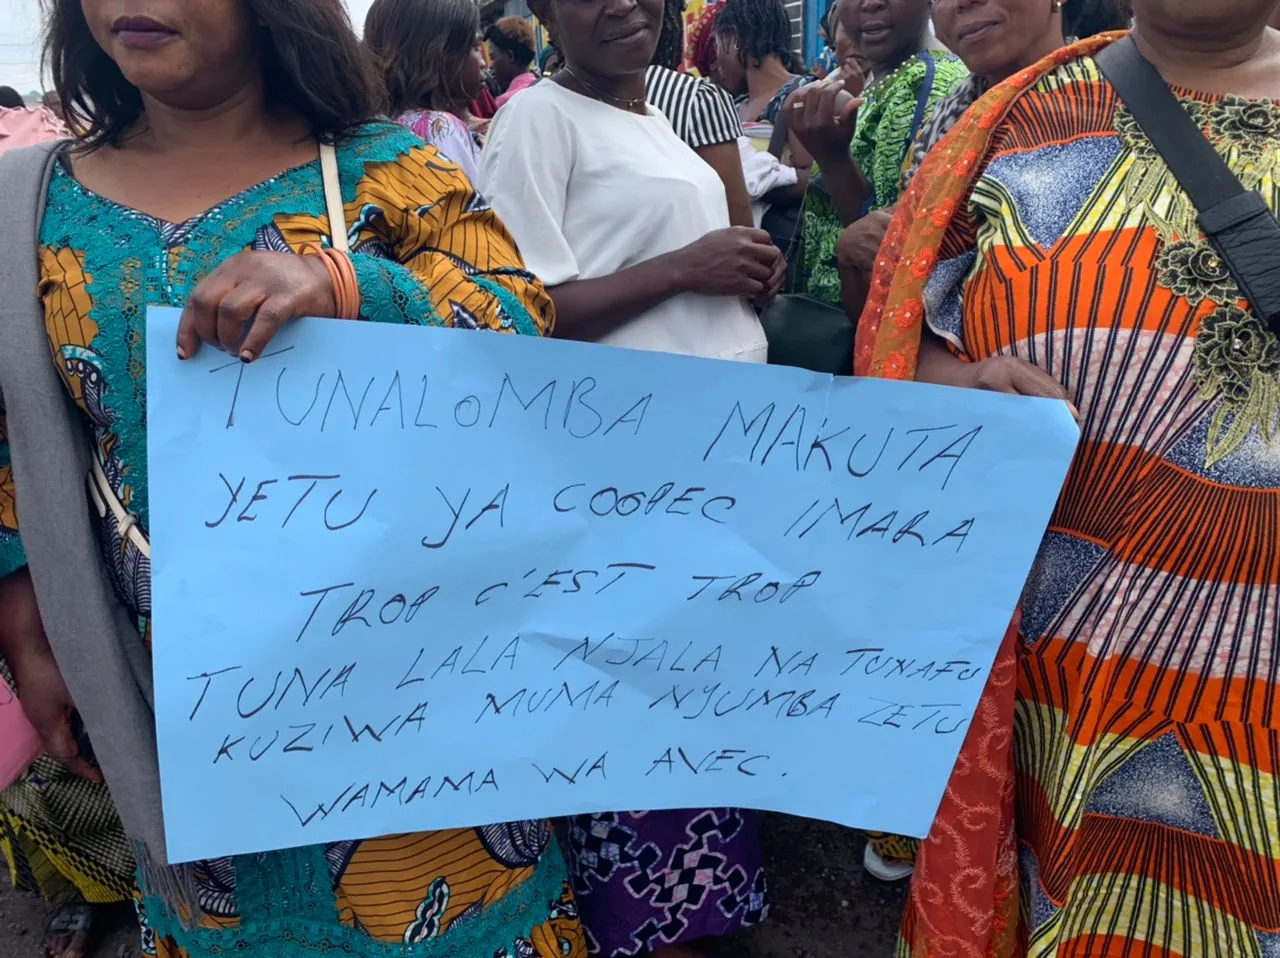 TUNALOMBA MAKUTA
YETU YA COOPEC IMARA
TROP C'EST TROP
TUNA LALA NJALA NA TUNAFU
KUZIWA MUMA NYUMBA ZETU
WAMAMA WA AVEC.